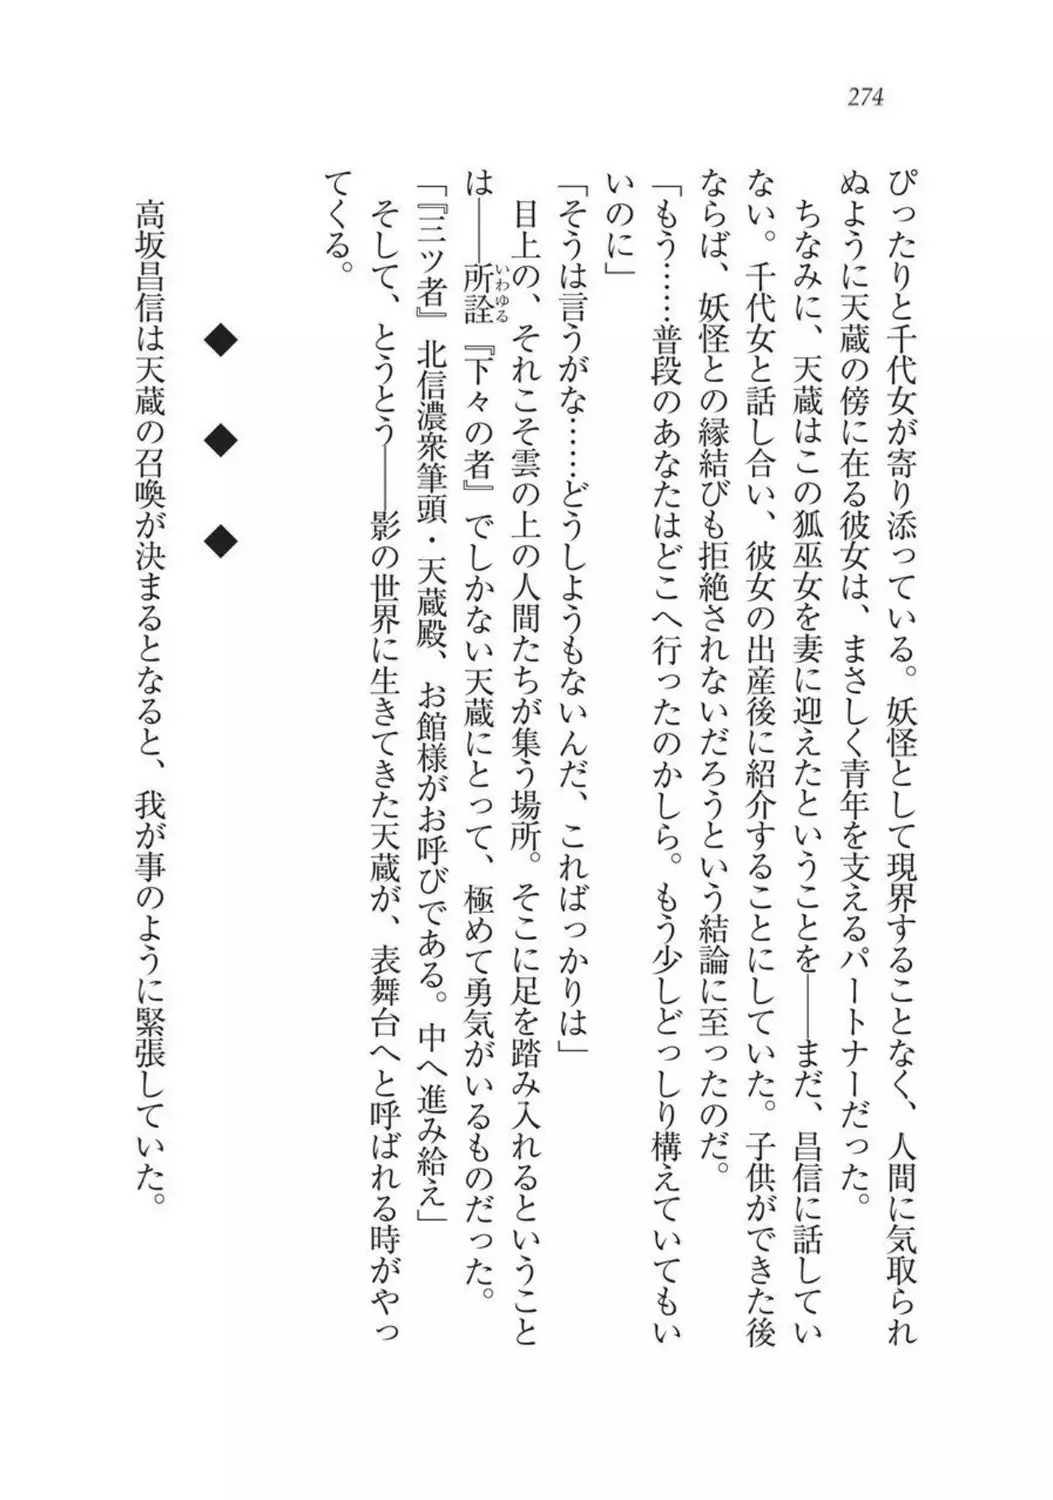 274
ぴったりと千代女が寄り添っている。妖怪として現界することなく、人間に気取られ
ぬように天蔵の傍に在る彼女は、まさしく青年を支えるパートナーだった。
ちなみに、天蔵はこの狐巫女を妻に迎えたということを――まだ、昌信に話してい
ない。千代女と話し合い、彼女の出産後に紹介することにしていた。子供ができた後
ならば、妖怪との縁結びも拒絶されないだろうという結論に至ったのだ。
「もう……普段のあなたはどこへ行ったのかしら。もう少しどっしり構えていてもい
いのに」
「そうは言うがな……どうしようもないんだ、こればっかりは」
目上の、それこそ雲の上の人間たちが集う場所。そこに足を踏み入れるということ
は――所詮『下々の者』でしかない天蔵にとって、極めて勇気がいるものだった。
いわゆる
「『三ツ者』北信濃衆筆頭・天蔵殿、お館様がお呼びである。中へ進み給え」
そして、とうとう――影の世界に生きてきた天蔵が、表舞台へと呼ばれる時がやっ
てくる。
◆ ◆ ◆
高坂昌信は天蔵の召喚が決まるとなると、我が事のように緊張していた。